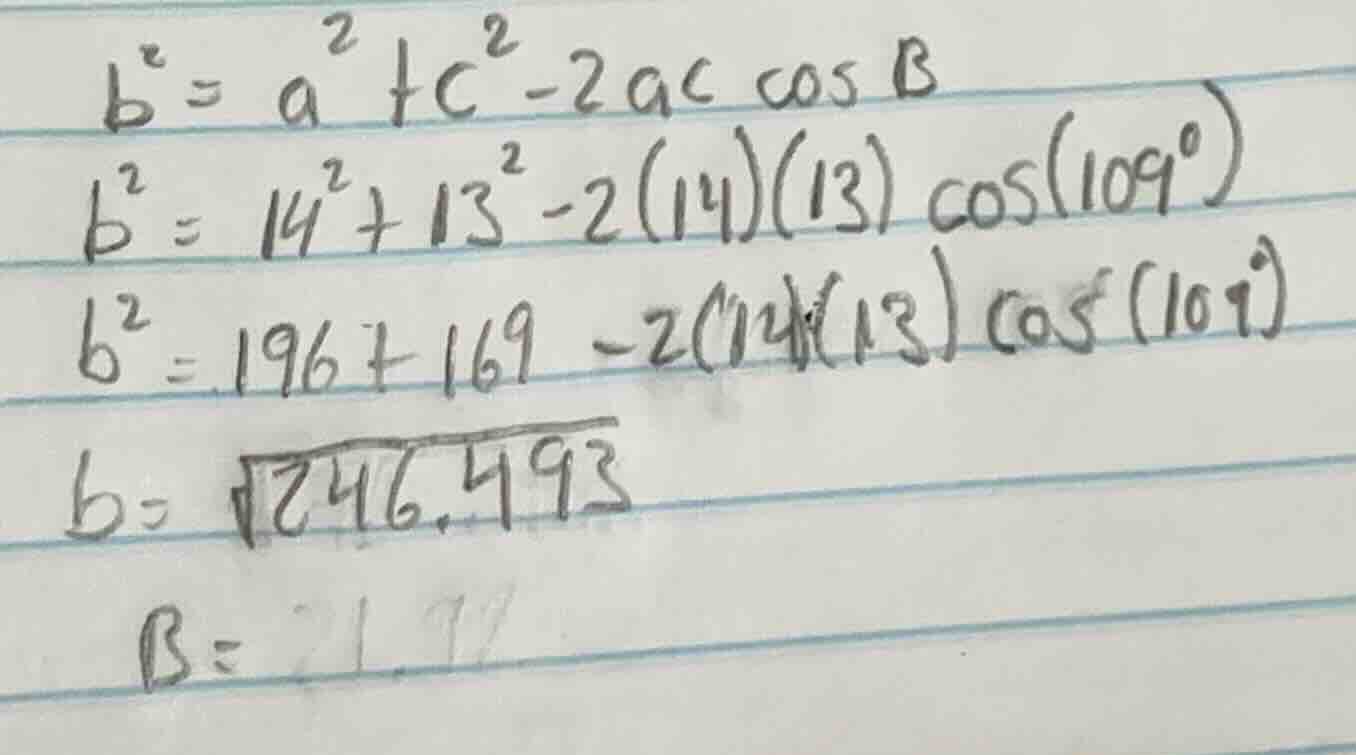 b² = a² + c² - 2ac cos B
b² = 14² + 13² - 2(14)(13) cos(109°)
b² = 196 + 169 - 2(14)(13) cos(109°)
b = √246.493
B =